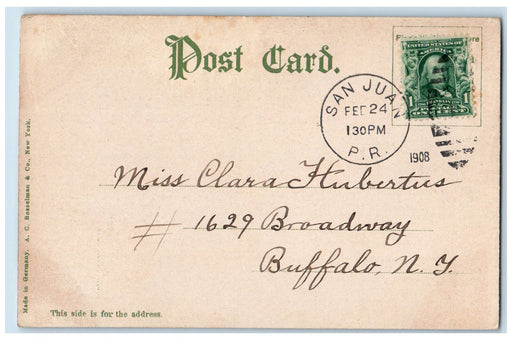 Post Card.
UNITED STATES OF AMERICA
1 1
SAN JUAN
FEB 24
130PM
P. R.
1908
Miss Clara Hubertus
# 1629 Broadway
Buffalo, N. Y.
This side is for the address.
Made in Germany. A. C. Bosselman & Co., New York.